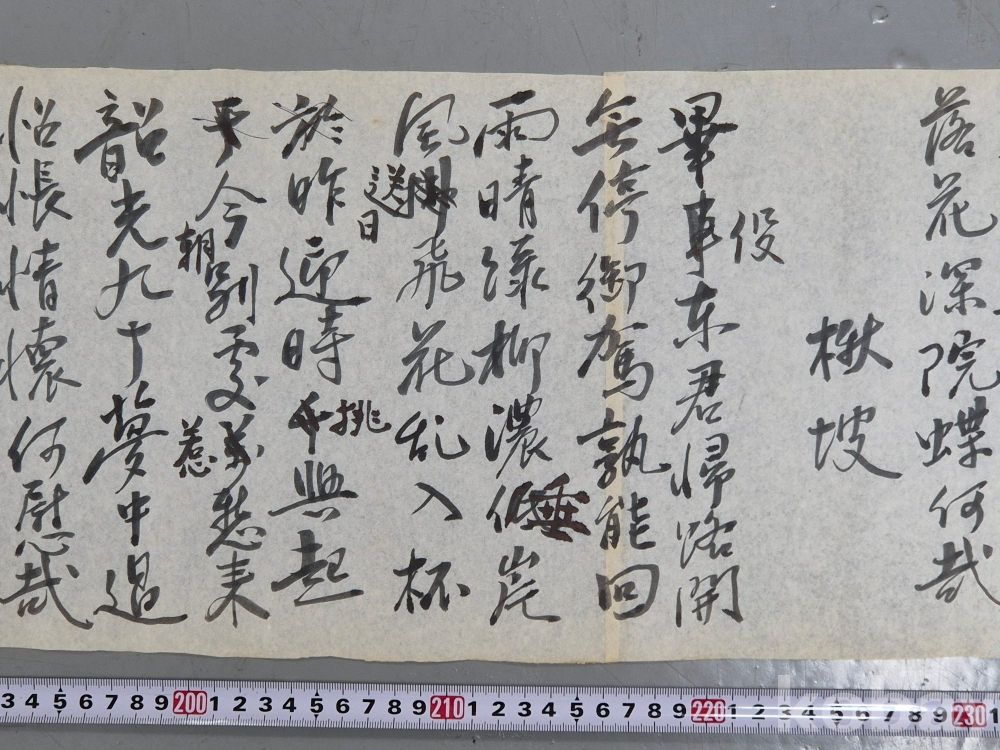 落花深院蝶何哉
楸坡
役
畢事东君帰路開
無停御駕孰能回
雨晴绿柳濃低岸
垂
风飛花乱入杯
送日
於昨迎時千興起
挑
今別處万愁来
朝
惹
韶光九十夢中過
悵情懷何慰哉
3 4 5 6 7 8 9 200 1 2 3 4 5 6 7 8 9 210 1 2 3 4 5 6 7 8 9 220 1 2 3 4 5 6 7 8 9 230 1